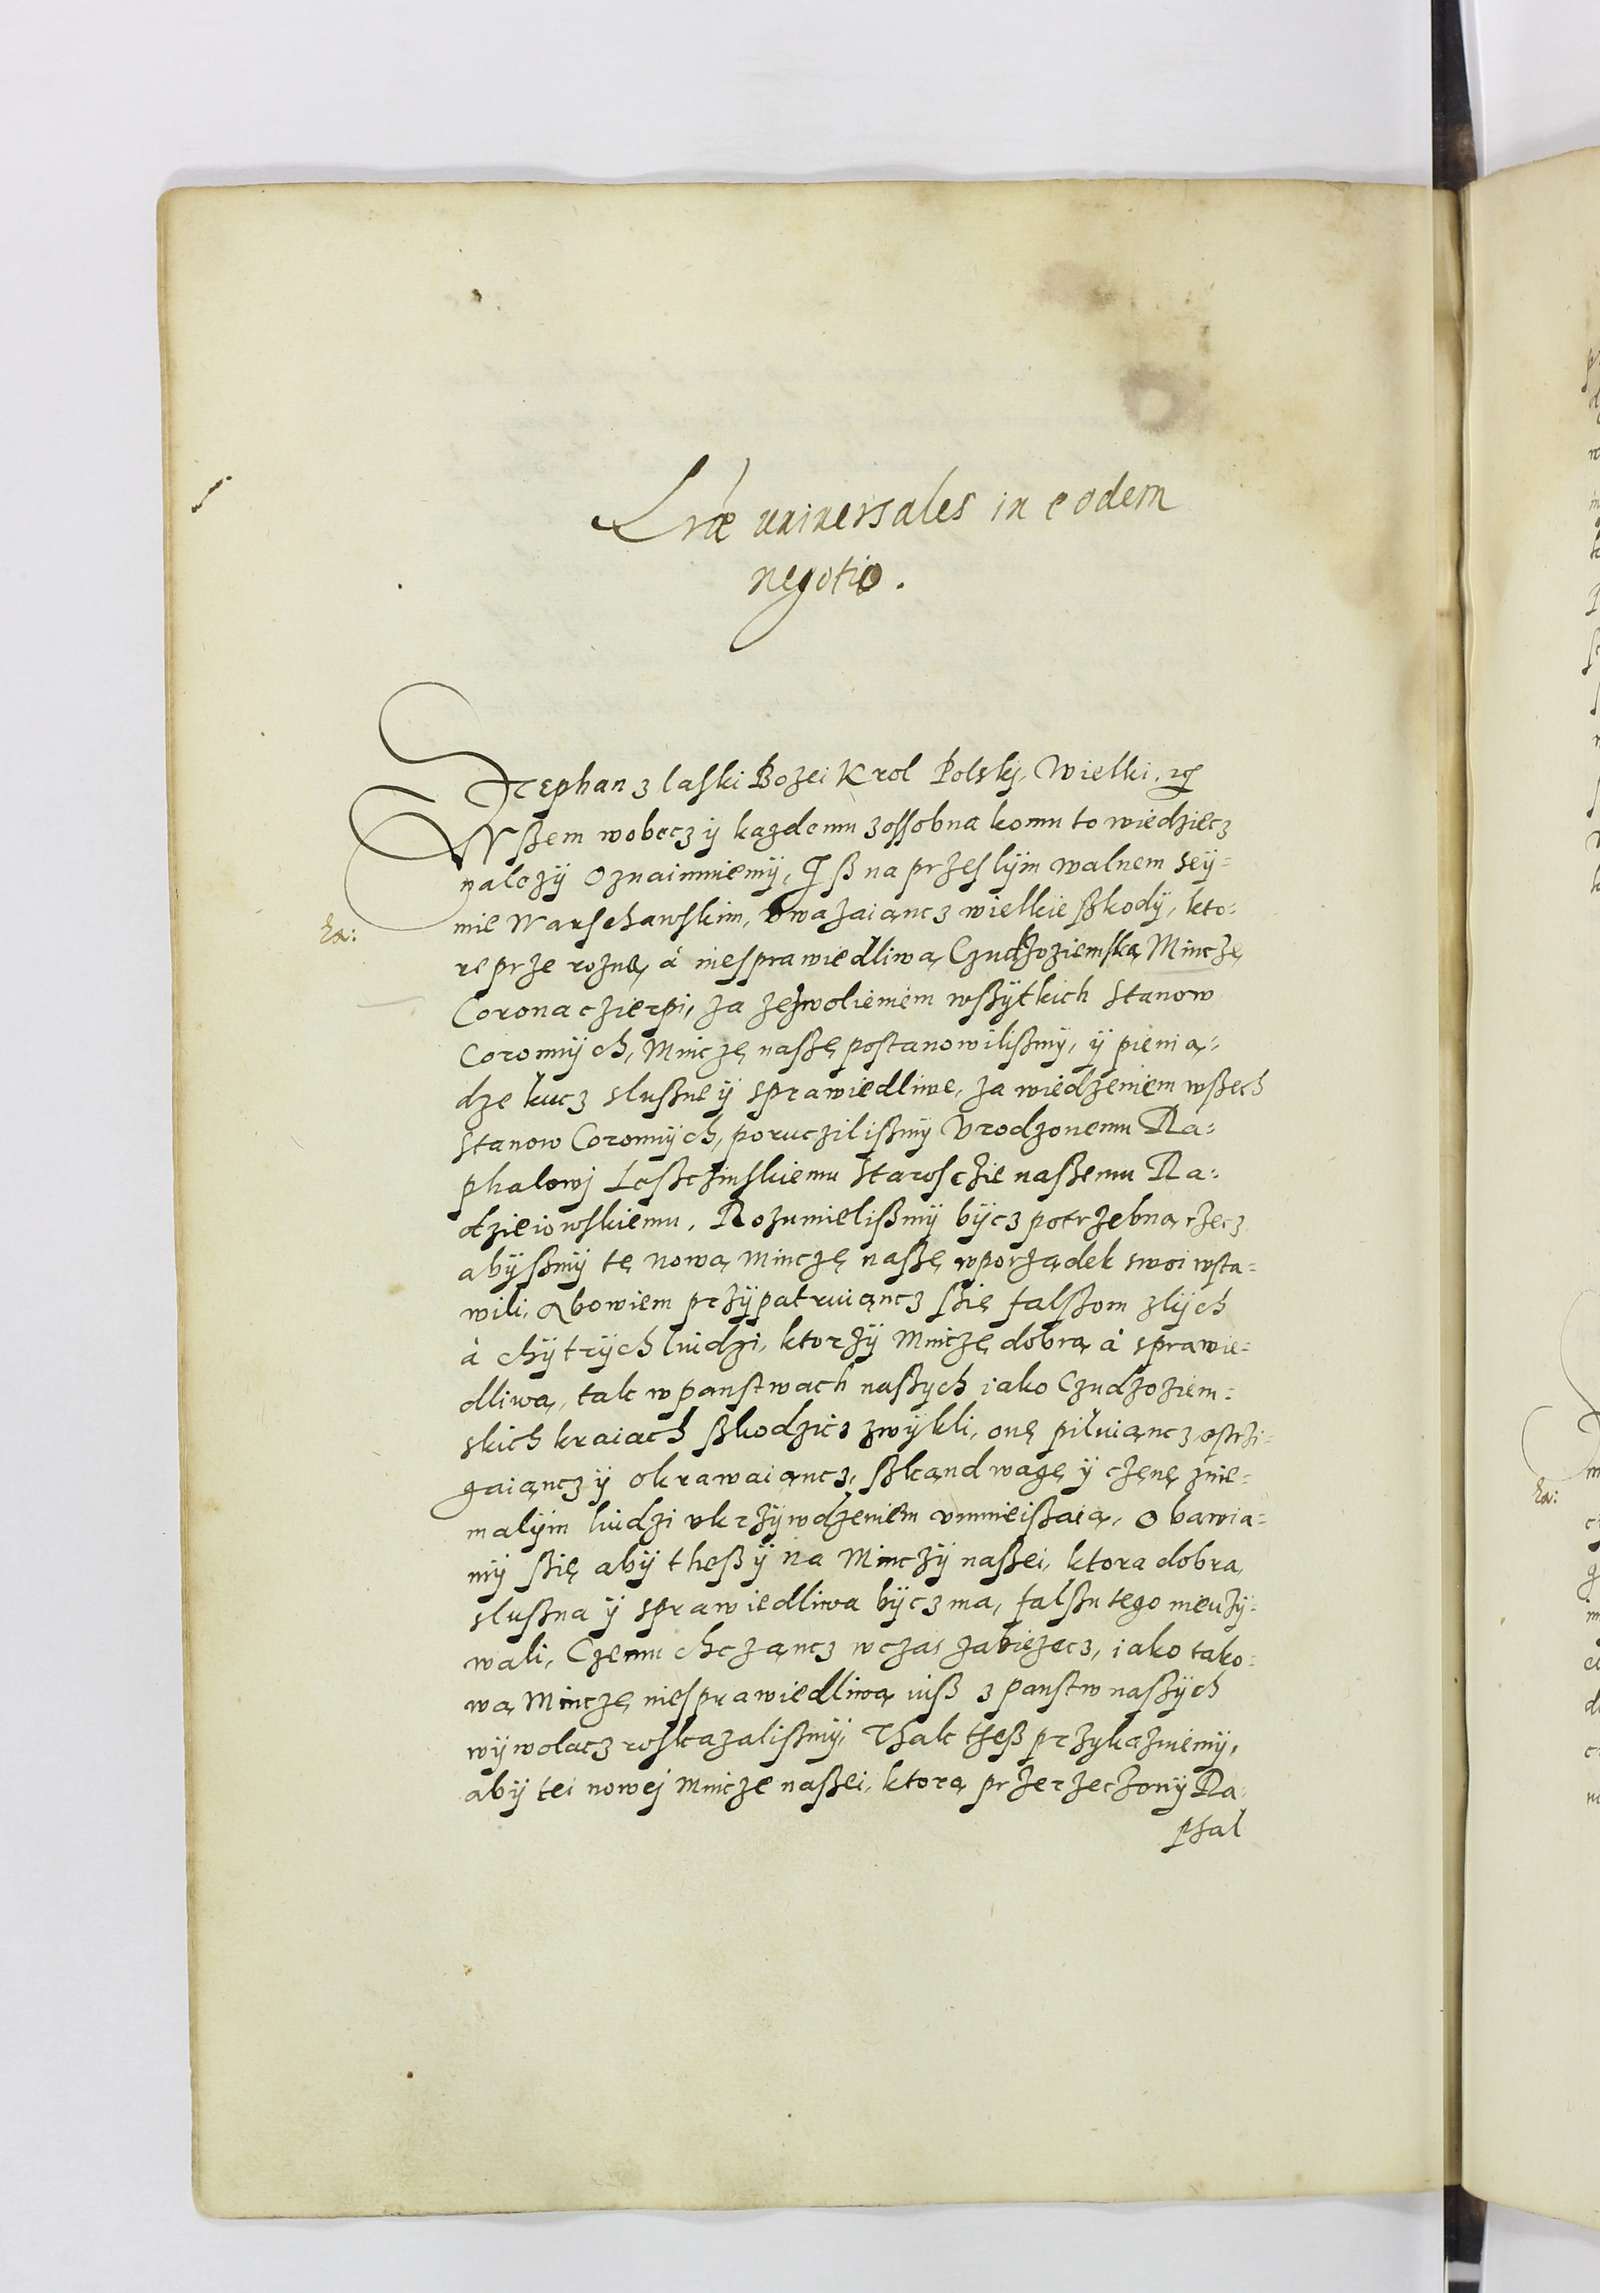 Lræ universales in eodem
negotio.
Stephan z laski Bozei Krol Polskj, Wielki, etc
Wßem wobecz ÿ kazdemu zossobna komu to wiedziecz
nalezÿ Oznaimuiemÿ, Iß na przeslÿm walnem seÿ=
mie Warschawskim, uwazaiancz wielkie ßkodÿ, kto=
re prze roznę à niesprawiedliwą Czudzoziemską Minczę
Corona czierpi, za zezwolieniem wßÿtkich Stanow
Coronnÿch, Minczę naßę postanowilißmÿ, ÿ pienią=
dze kucz slußne ÿ sprawiedliwe, za wiedzeniem wßech
Stanow Coronnÿch, poruczilißmÿ Urodzonemu Ra=
phalowj Leßczinskiemu Starosczie naßemu Ra=
dzieiowskiemu. Rozumielißmÿ bÿcz potrzebną rzecz
abÿßmÿ tę nową minczę naßę wporządek swoi wsta=
wili, Abowiem przÿpatruiąncz ßię falßom zlÿch
à chÿtrÿch liudzi, ktorzÿ Minczę dobrą à sprawie=
dliwą, tak wpanstwach naßych iako Czudzoziem=
skich kraiach ßkodzicz zwÿkli, onę piluiąncz ostrzi=
gaiąncz ÿ okrawaiąncz, ßkąnd wagę ÿ częnę znie=
malÿm liudzi ukrzÿwdzeniem umnieißaią, Obawia=
mÿ ßię abÿ theß ÿ na Minczÿ naßei, ktora dobra,
slußna ÿ sprawiedliwa bÿcz ma, falßu tego nieuzÿ=
wali, Czemu chcząncz wczas zabiezecz, iako tako=
wą Minczę niesprawiedliwą iuß z panstw naßÿch
wÿwolacz roskazalißmÿ, Thak theß przykazuiemÿ,
abÿ tei nowej Mincze naßei, ktorą przerzeczonÿ Ra=
phal